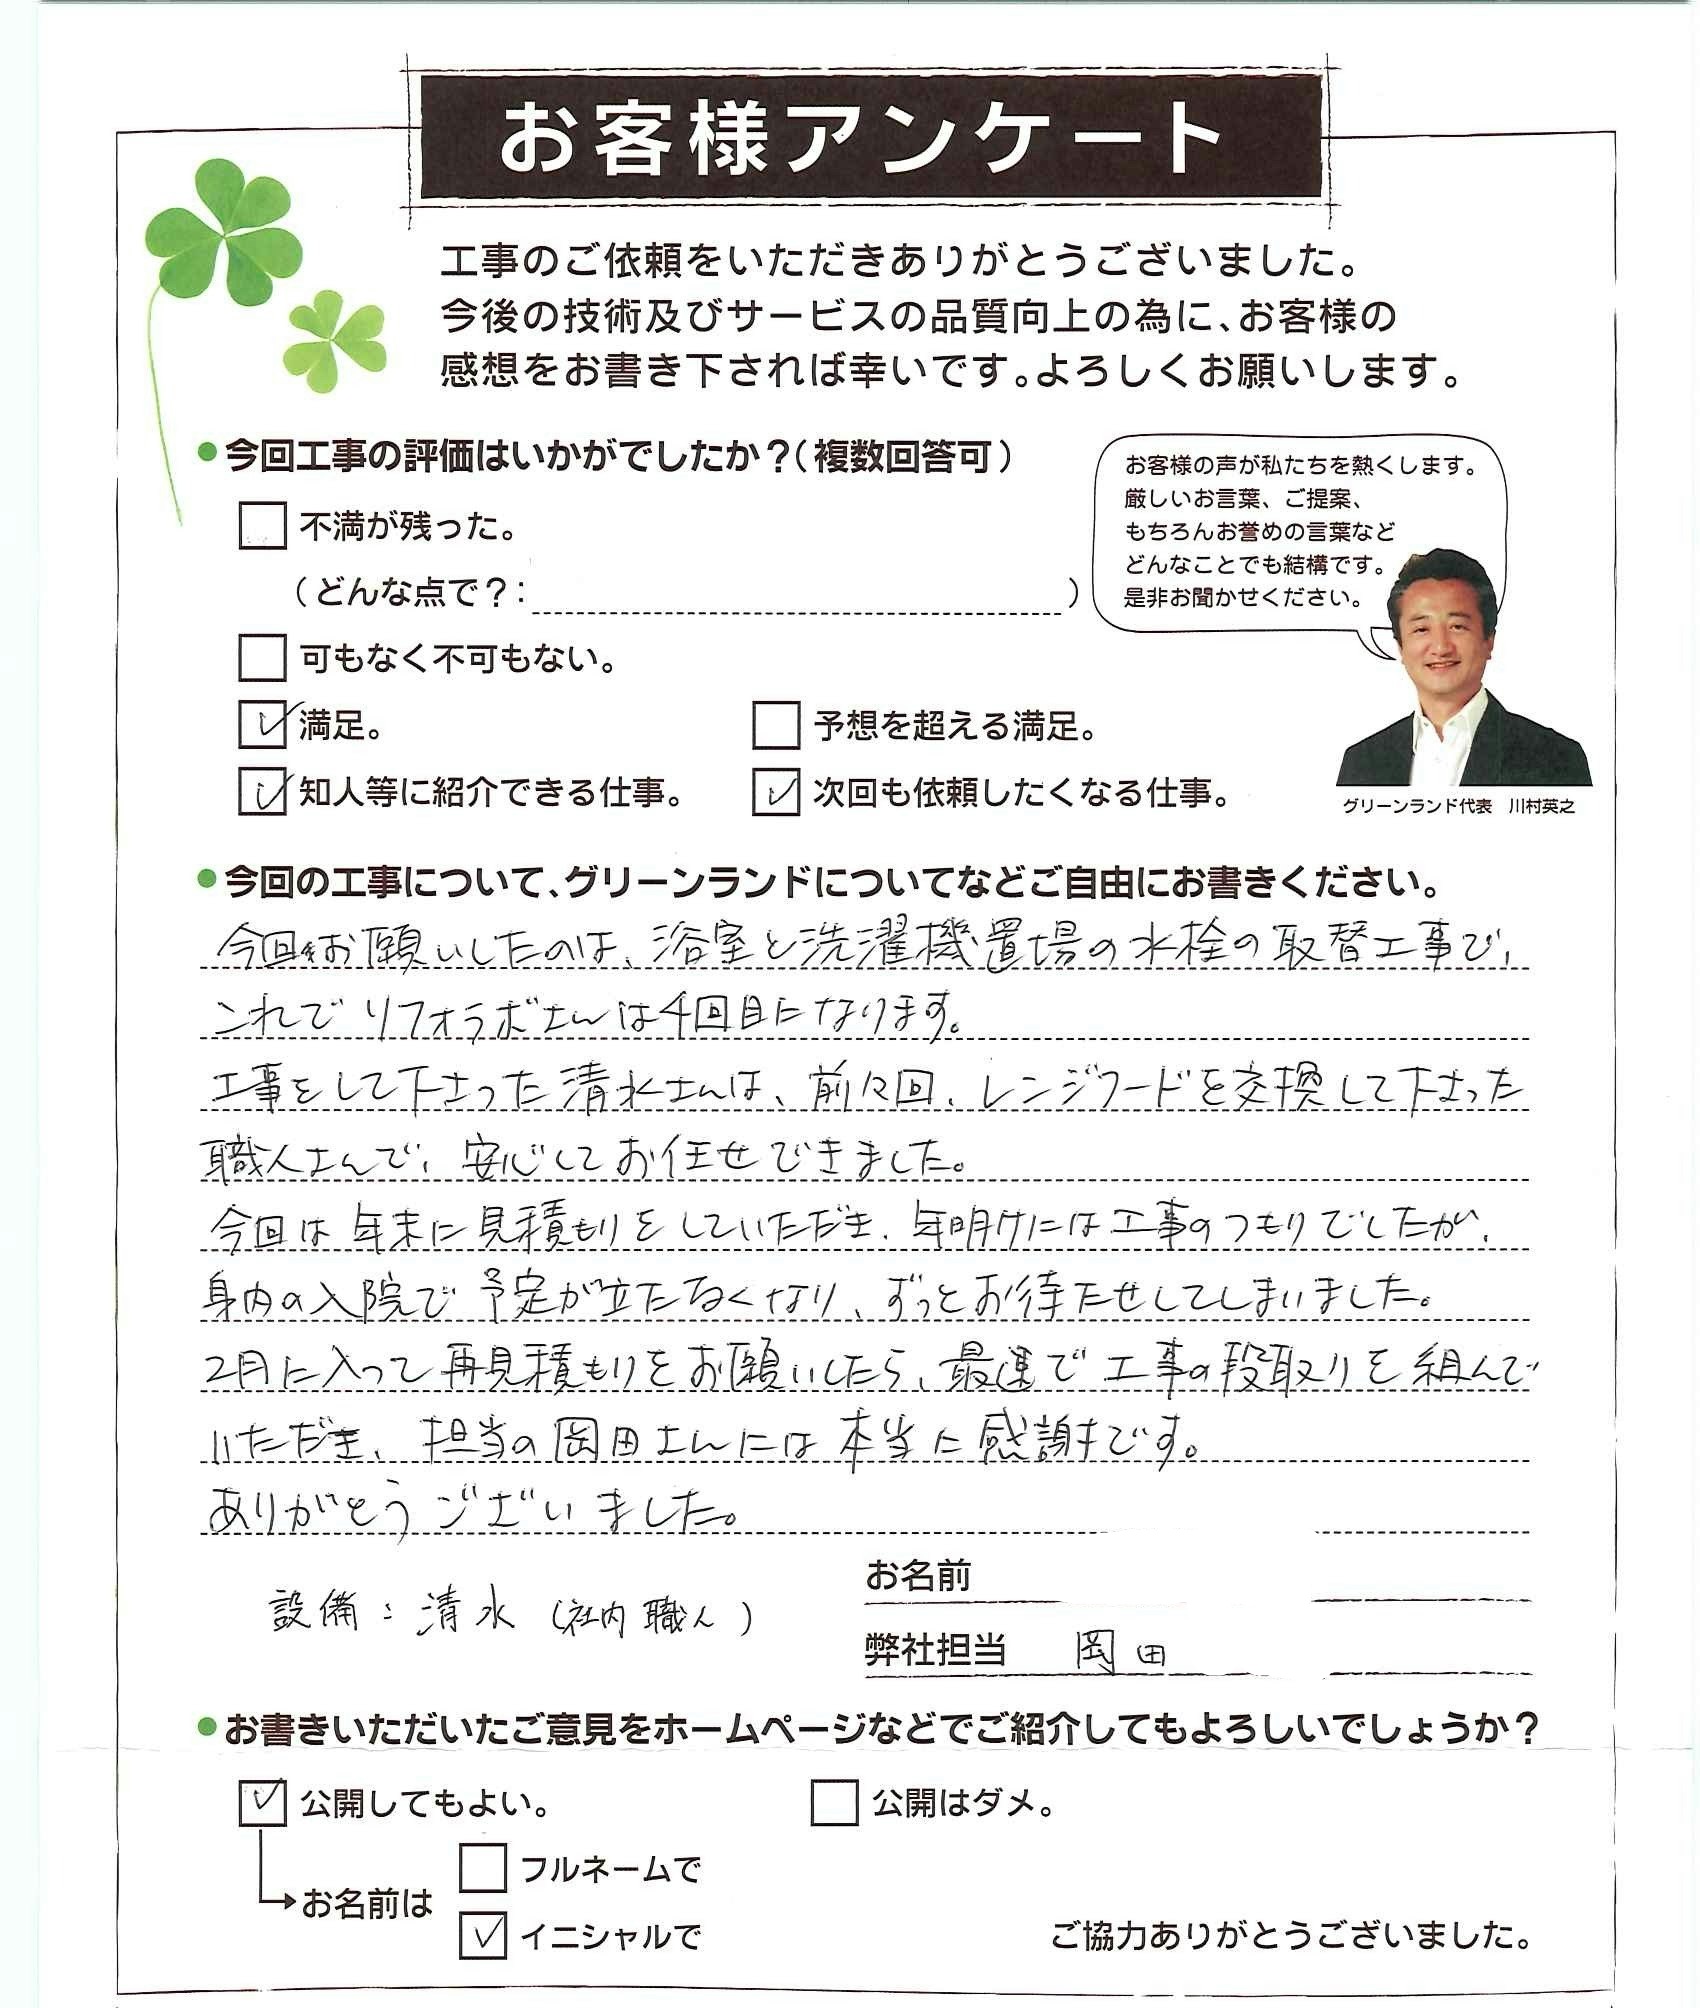 お客様アンケート
工事のご依頼をいただきありがとうございました。
今後の技術及びサービスの品質向上の為に、お客様の
感想をお書き下されば幸いです。よろしくお願いします。
●今回工事の評価はいかがでしたか？（複数回答可）
不満が残った。
（どんな点で？：　　　　）
可もなく不可もない。
満足。
予想を超える満足。
知人等に紹介できる仕事。
次回も依頼したくなる仕事。
お客様の声が私たちを熱くします。
厳しいお言葉、ご提案、
もちろんお誉めの言葉など
どんなことでも結構です。
是非お聞かせください。
グリーンランド代表　川村英之
●今回の工事について、グリーンランドについてなどご自由にお書きください。
今回お願いしたのは、浴室と洗濯機置場の水栓の取替工事で、
これでリフォラボさんは4回目になります。
工事をして下さった清水さんは、前々回、レンジフードを交換して下さった
職人さんで、安心してお任せできました。
今回は年末に見積もりをしていただき、年明けには工事のつもりでしたが、
身内の入院で予定が立たなくなり、ずっとお待たせしてしまいました。
2月に入って再見積もりをお願いしたら、最速で工事の段取りを組んで
いただき、担当の岡田さんには本当に感謝です。
ありがとうございました。
設備：清水（社内職人）
お名前
弊社担当　岡田
●お書きいただいたご意見をホームページなどでご紹介してもよろしいでしょうか？
公開してもよい。
公開はダメ。
お名前は
フルネームで
イニシャルで
ご協力ありがとうございました。